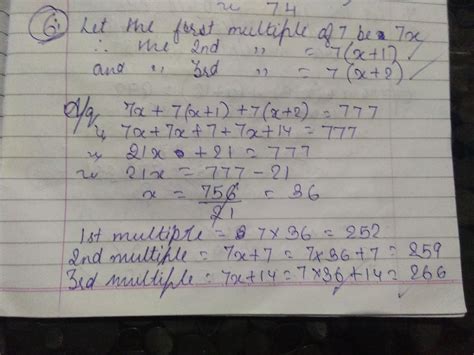 74
6) Let the first multiple of 7 be 7x
∴ the 2nd " = 7(x+1)
and " 3rd " = 7(x+2)
A/q, 7x + 7(x+1) + 7(x+2) = 777
" 7x + 7x + 7 + 7x + 14 = 777
" 21x + 21 = 777
" 21x = 777 - 21
x = 756/21 = 36
1st multiple = 7 x 36 = 252
2nd multiple = 7x + 7 = 7 x 36 + 7 = 259
3rd multiple = 7x + 14 = 7 x 36 + 14 = 266